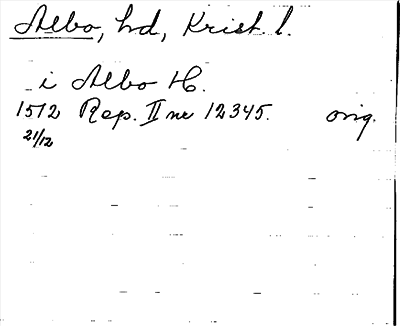 Albo, hd, Krist. l.
i Albo H.
1512 Rep. II nr 12345. orig.
21/12